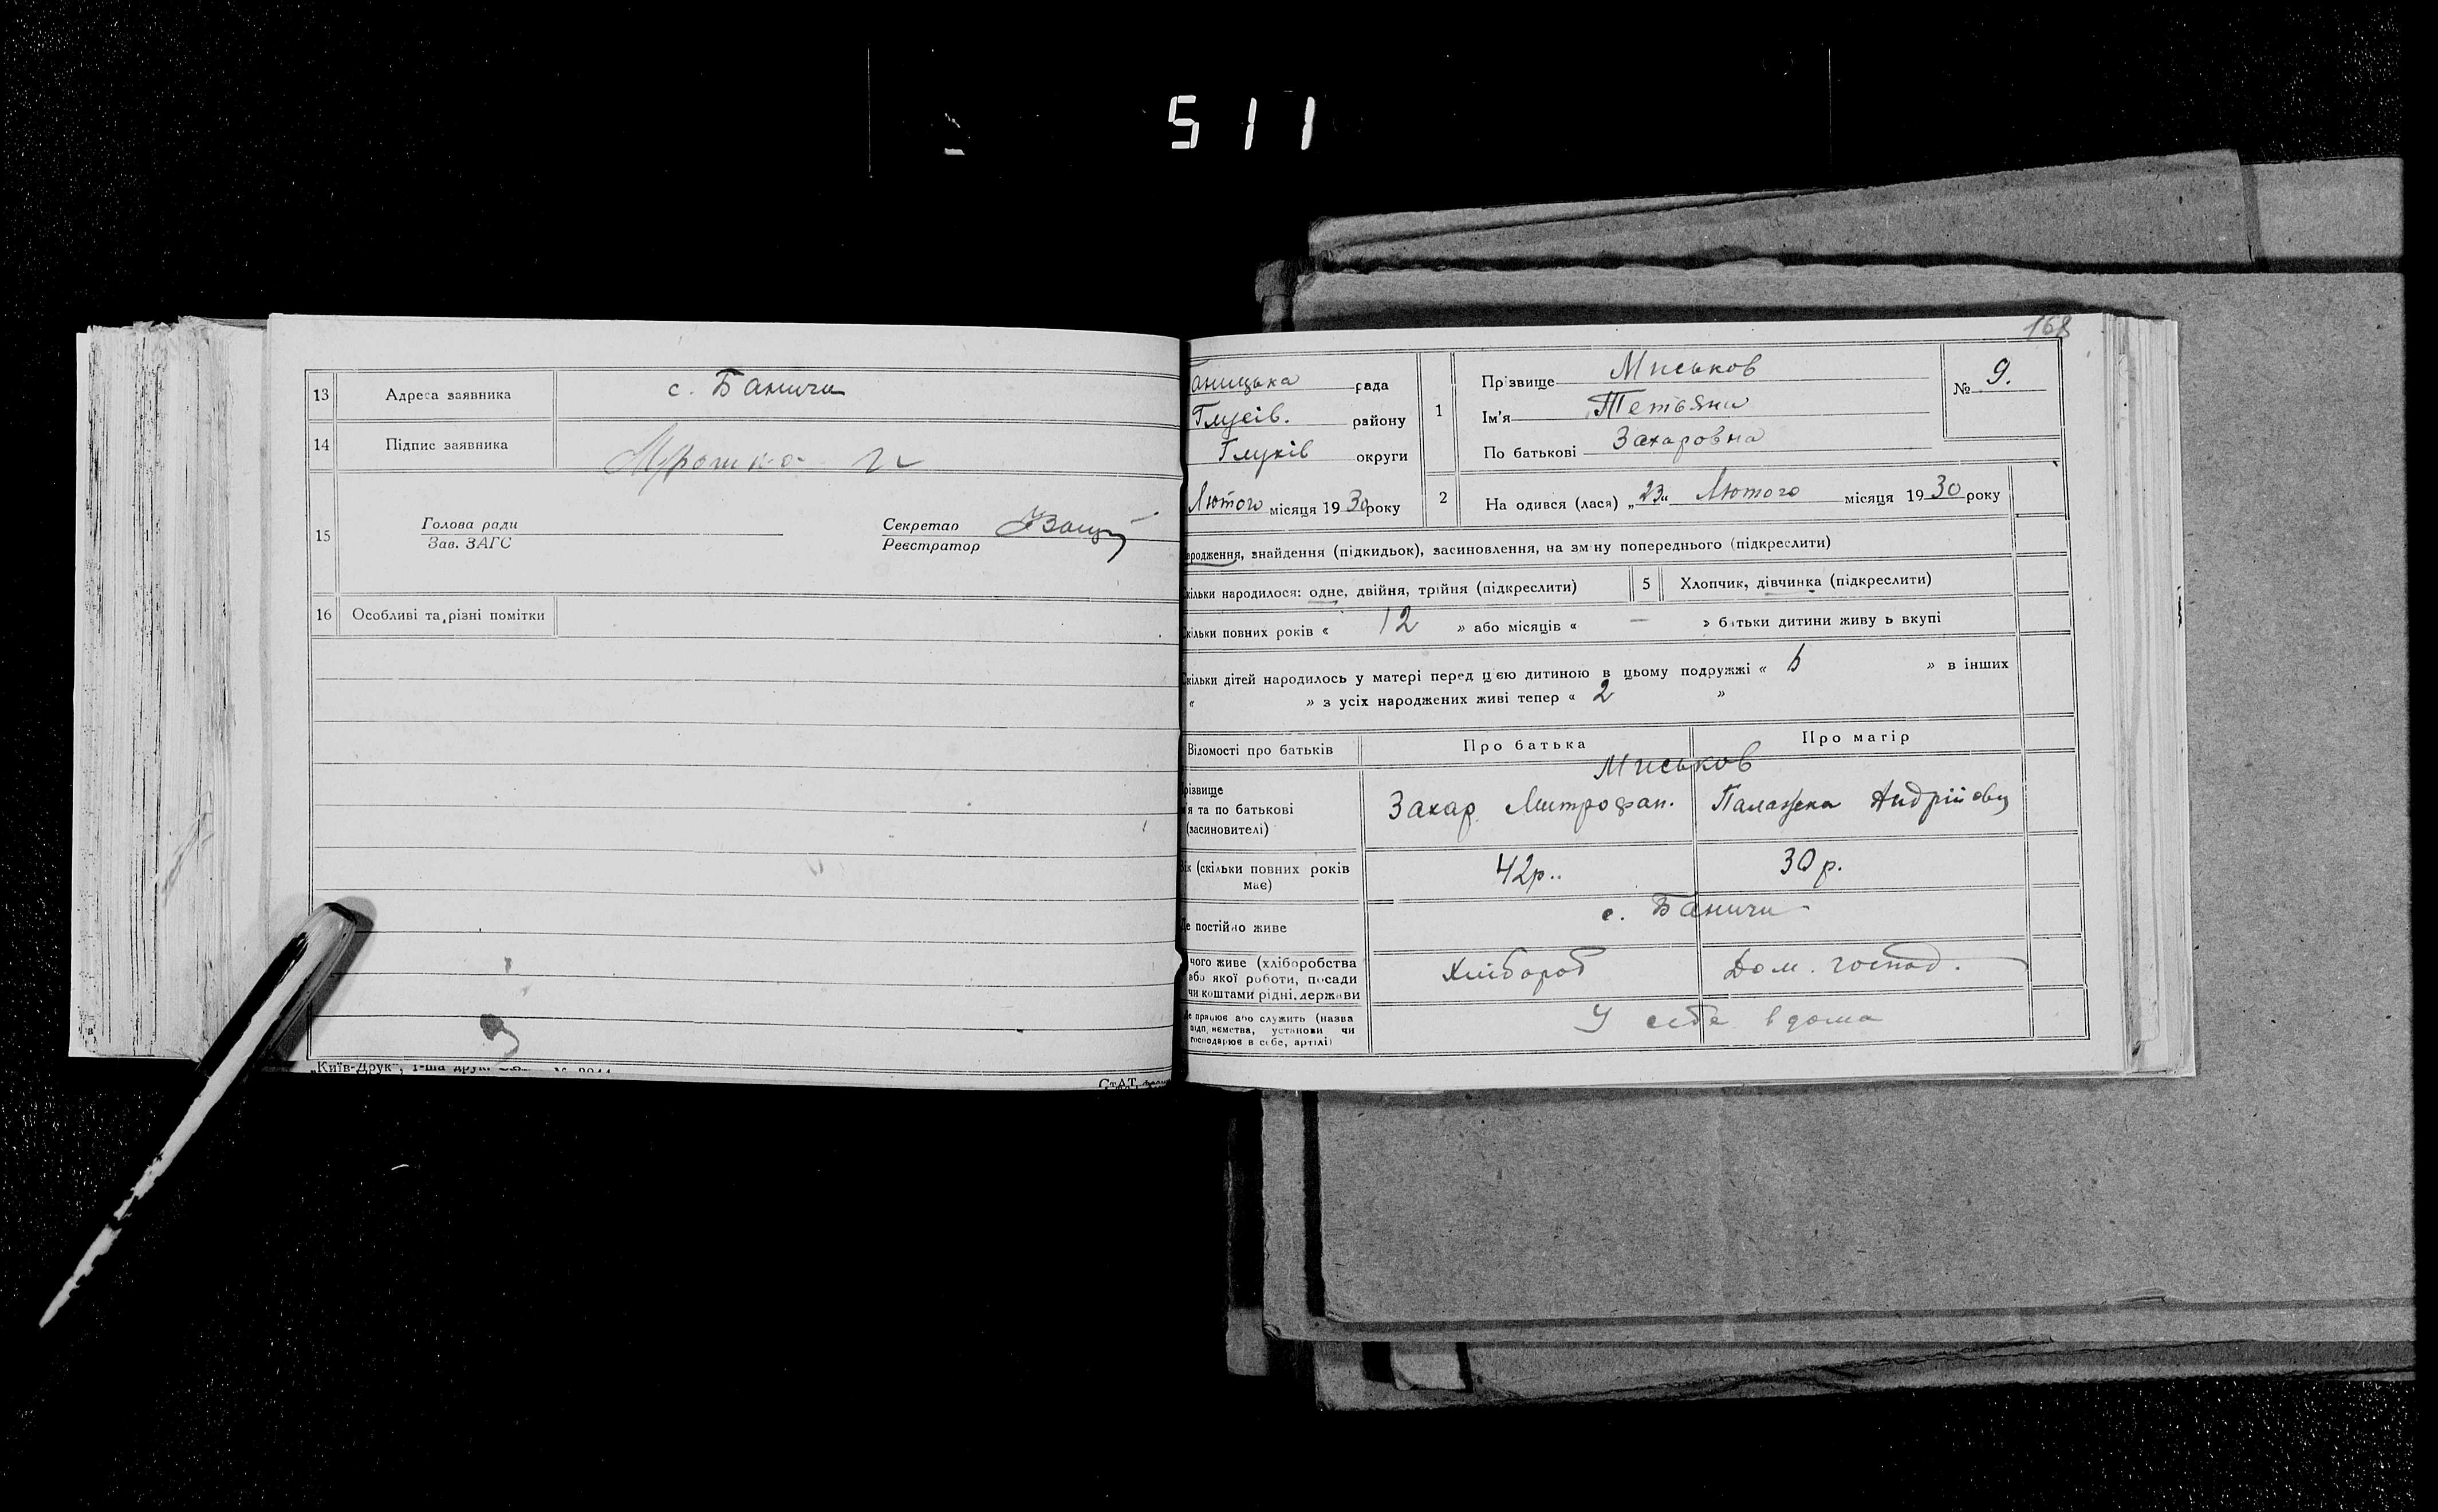 511
13 Адреса заявника с. Баничи
14 Підпис заявника
15 Голова ради
Зав. ЗАГС
Секретар
Реєстратор
16 Особливі та різні помітки
„Київ-Друк“, 1-ша друк.
168
Баницька рада
Глухів. району
Глухів округи
Лютого місяця 1930 року
1 Прізвище Миськов
Ім'я Тетьяна
По батькові Захаровна
№ 9.
2 Народився (лася) „23“ Лютого місяця 1930 року
народження, знайдення (підкидьок), засиновлення, на зміну попереднього (підкреслити)
скільки народилося: одне, двійня, трійня (підкреслити) 5 Хлопчик, дівчинка (підкреслити)
Скільки повних років « 12 » або місяців « — » батьки дитини живуть вкупі
Скільки дітей народилось у матері перед цією дитиною в цьому подружжі « » в інших
« » з усіх народжених живі тепер « 2 »
Відомості про батьків Про батька Про матір
Миськов
Прізвище
ім'я та по батькові
(засиновителі)
Захар Митрофан. Палажка Андрійовн
Вік (скільки повних років
має)
42р.. 30 р.
Де постійно живе с. Баничи
чого живе (хліборобства
або якої роботи, посади
чи коштами рідні, держави
Хлібороб Дом. господ.
Де працює або служить (назва
підприємства, установи чи
господарює в себе, артілі)
У себе вдома